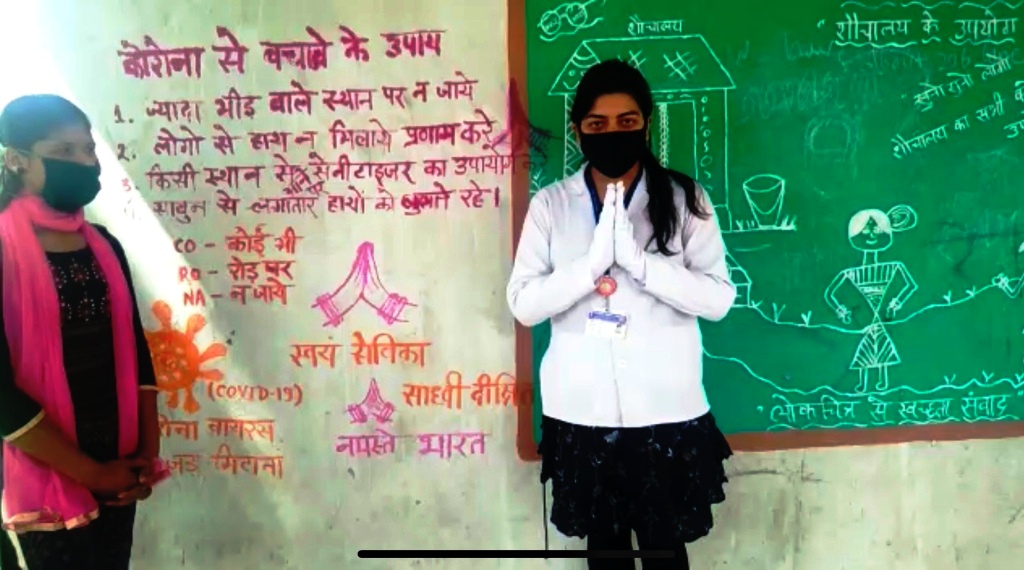 कोरोना से बचावे के उपाय
1. ज्यादा भीड़ वाले स्थान पर न जाये
2. लोगो से हाथ न मिलाये प्रणाम करे
3. किसी स्थान से सेनीटाइजर का उपयोग
साबुन से लगातार हाथों को धुलाते रहे।
CO - कोई भी
RO - रोड़ पर
NA - न जाये
(COVID-19)
स्वयं सेविका
साध्वी दीक्षित
नमस्ते भारत
वायरस
मिटाना
शौचालय
"शौचालय के उपयोग
सुनो सुनो लोगो
शौचालय का सभी
"लोक चित्र से स्वच्छता संवाद"